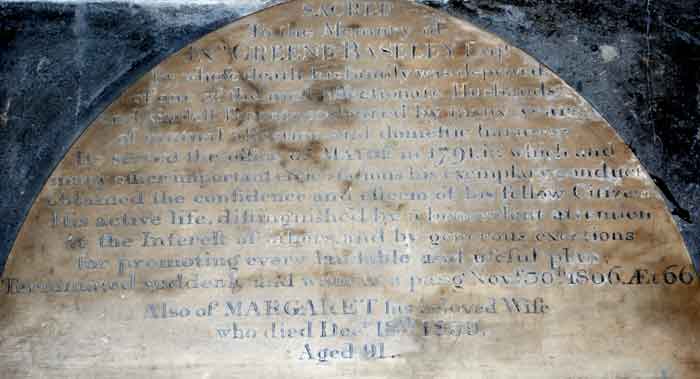 SACRED
To the Memory of
GREENE BASELEY Esqr.
by whose death his family was deprived
of one of the most affectionate Husbands
and endeared by many years
of mutual affection and domestic harmony
He served the office of MAYOR in 1791. in which and
many other important his exemplary conduct
obtained the confidence and esteem of his fellow Citizens
His active life, distinguished by a benevolent attention
to the Interest of others, and by generous exertions
for promoting every laudable and useful plan,
Terminated suddenly and without a pang Novr. 30th. 1806. Æt 66
Also of MARGARET his beloved Wife
who died Decr.
Aged 91.